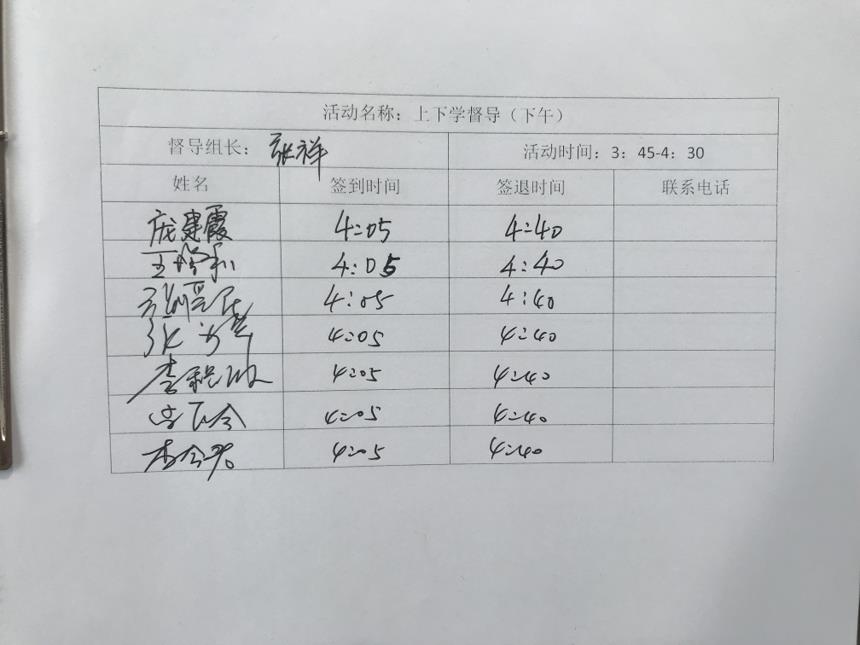 活动名称：上下学督导（下午）
督导组长：张祥 活动时间：3：45-4：30
姓名 签到时间 签退时间 联系电话
庞建霞 4:05 4:40
4:05 4:40
4:05 4:40
张 4:05 4:40
李 4:05 4:40
4:05 4:40
李 4:05 4:40